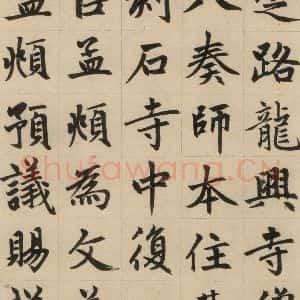 定路龍興寺僧
八奏師本住其
刻石寺中復
臣孟頫為文并
孟頫預議賜謚
Shufawang.CN